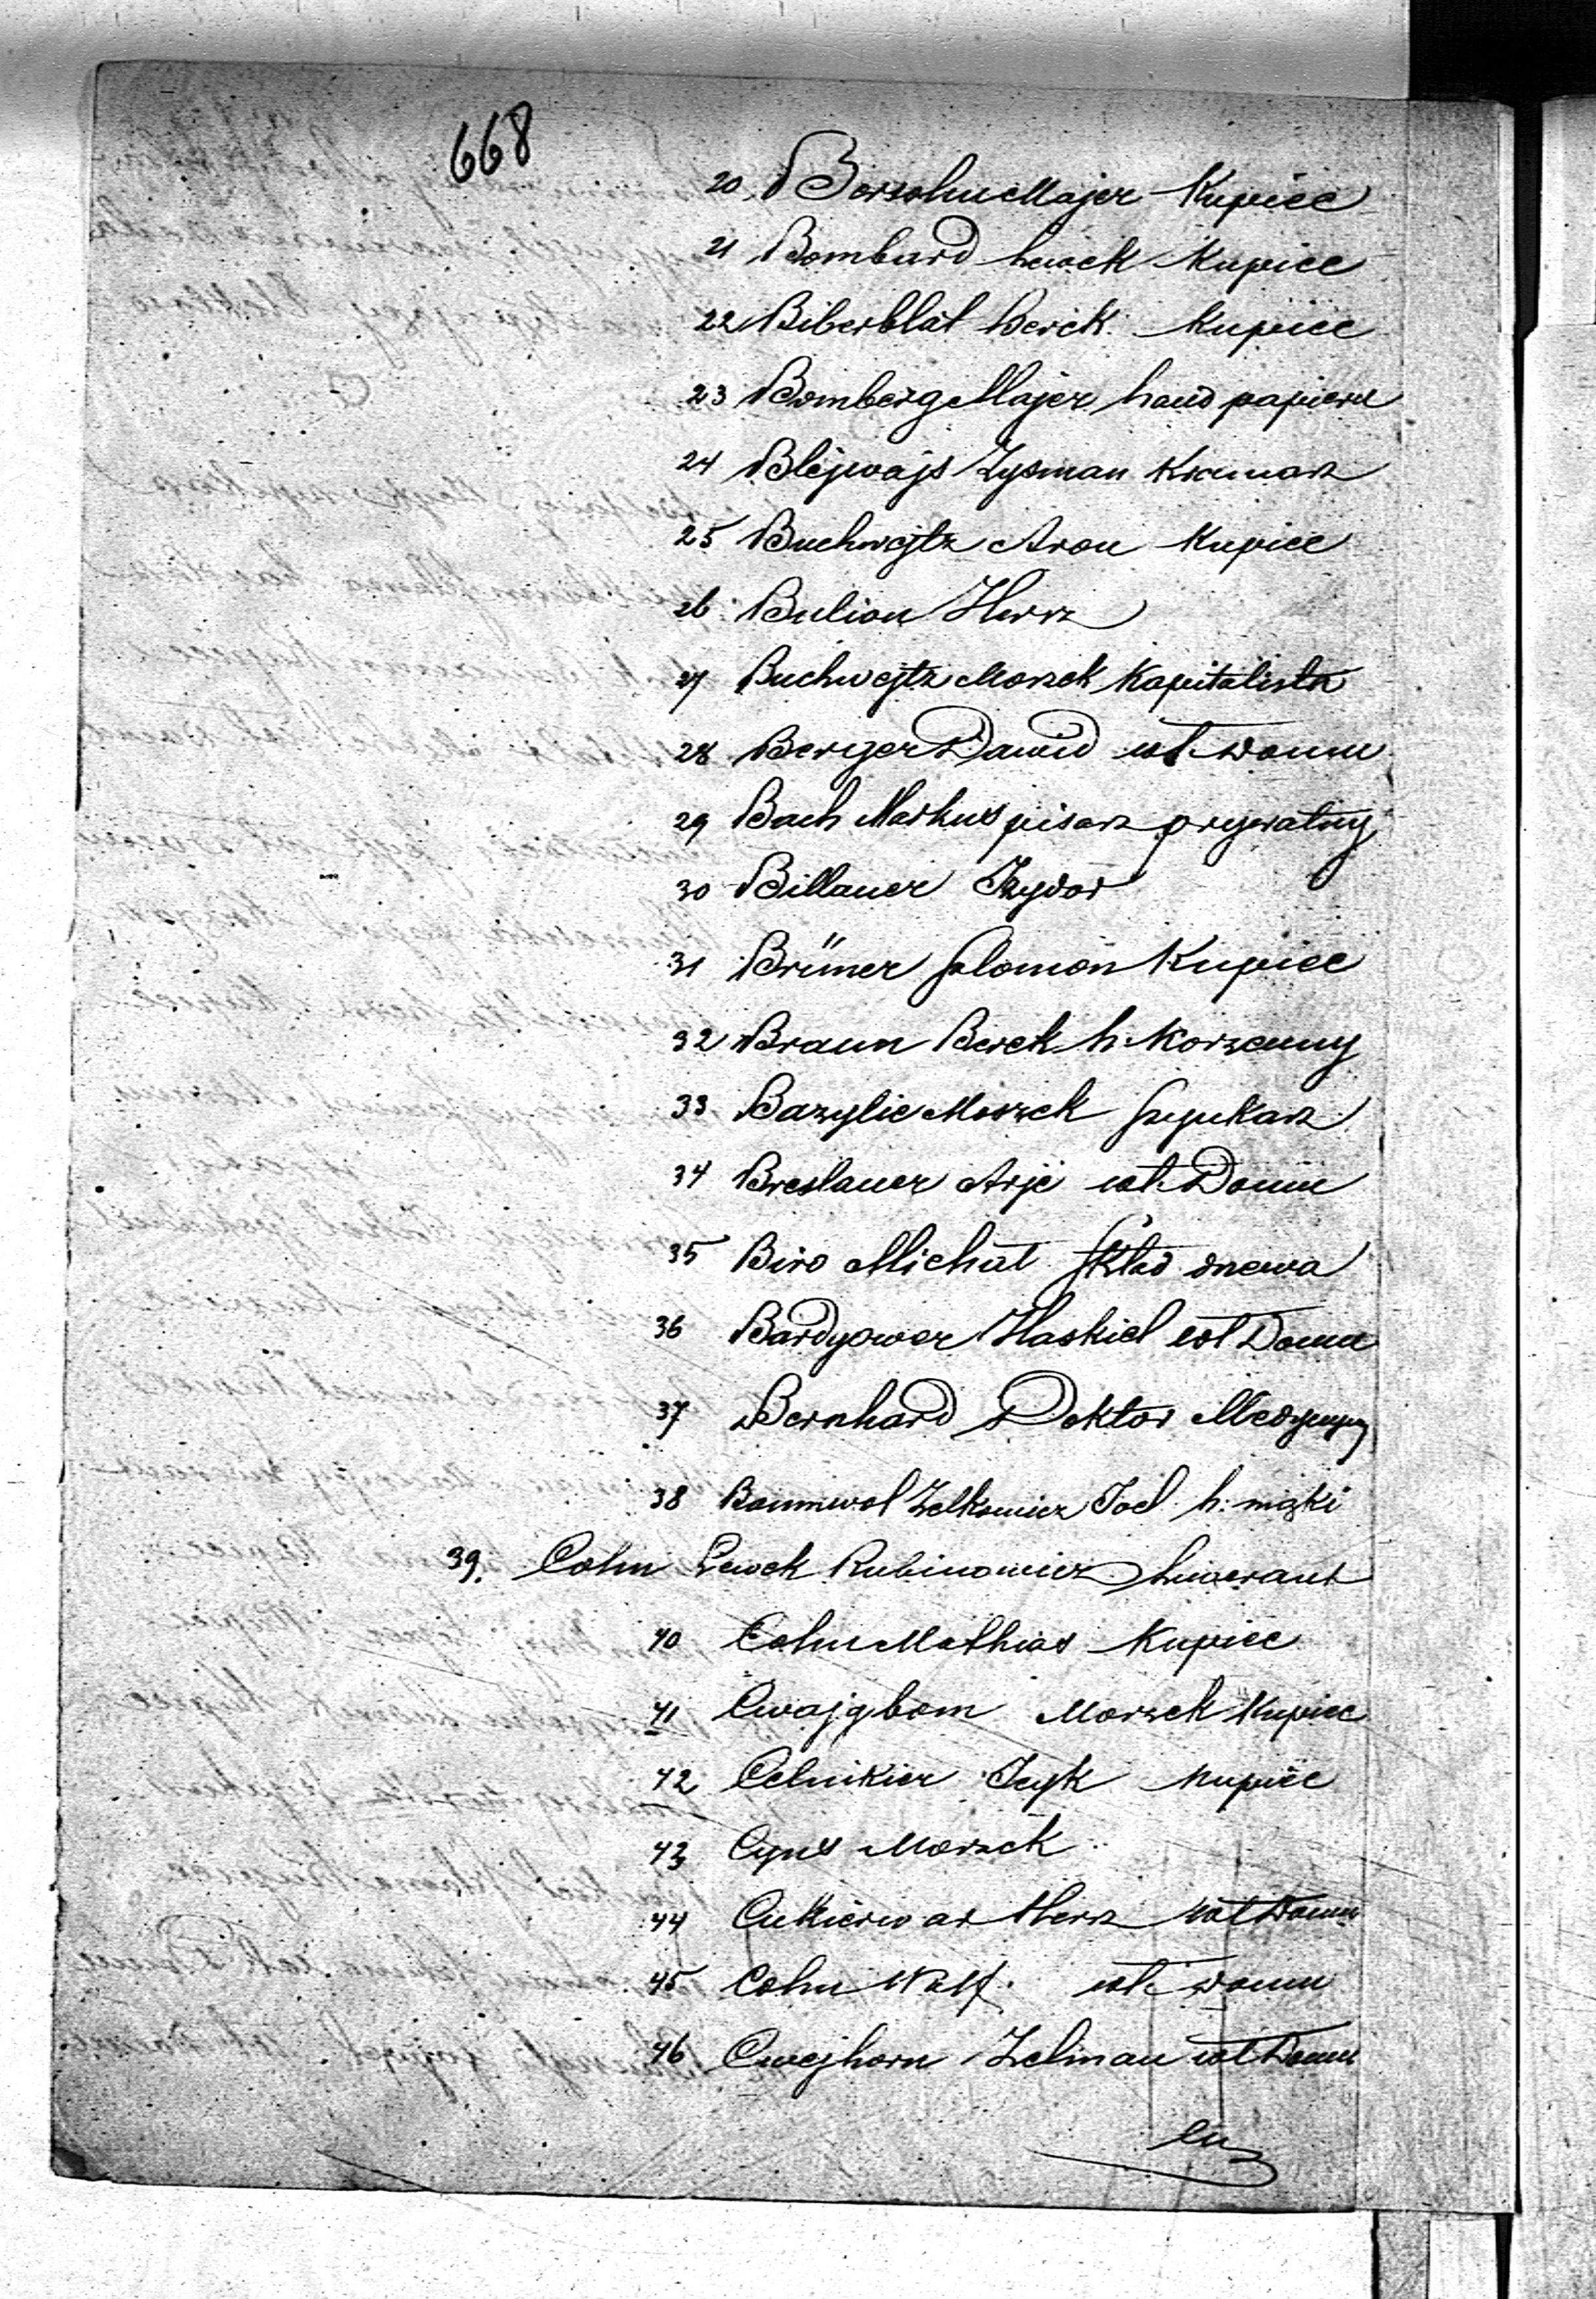 668
20 Bersohn Majer Kupiec
21 Bombard Lewek Kupiec
22 Biberblat Berek Kupiec
23 Bomberg Majer hand papieru
24 Blejwajs Zysman Kramarz
25 Buchwejtz Aron Kupiec
26 Bulion Herz
27 Buchwejtz Moszek Kapitalista
28 Berger Dawid wł. domu
29 Bach Markus pisarz prywatny
30 Billauer Izydor
31 Brüner Salomon Kupiec
32 Braun Berek h. Korzenny
33 Bazylie Moszek Szynkarz
34 Breslauer Arje wł. Domu
35 Biro Michał Skład drzewa
36 Bardyower Haskiel wł Domu
37 Bernhard Doktor Medycyny
38 Baumwol Zelkowicz Joel h: mąki
39. Cohn Lewek Rubinowicz liwerant
40 Cohn Mathias Kupiec
41 Cwajgbom Moszek Kupiec
42 Celnikier Icyk Kupiec
43 Cyns Moszek
44 Cukierwar Herz wł Domu
45 Cohn Wolf. wł. domu
46 Cwejhorn Zelman wł Domu